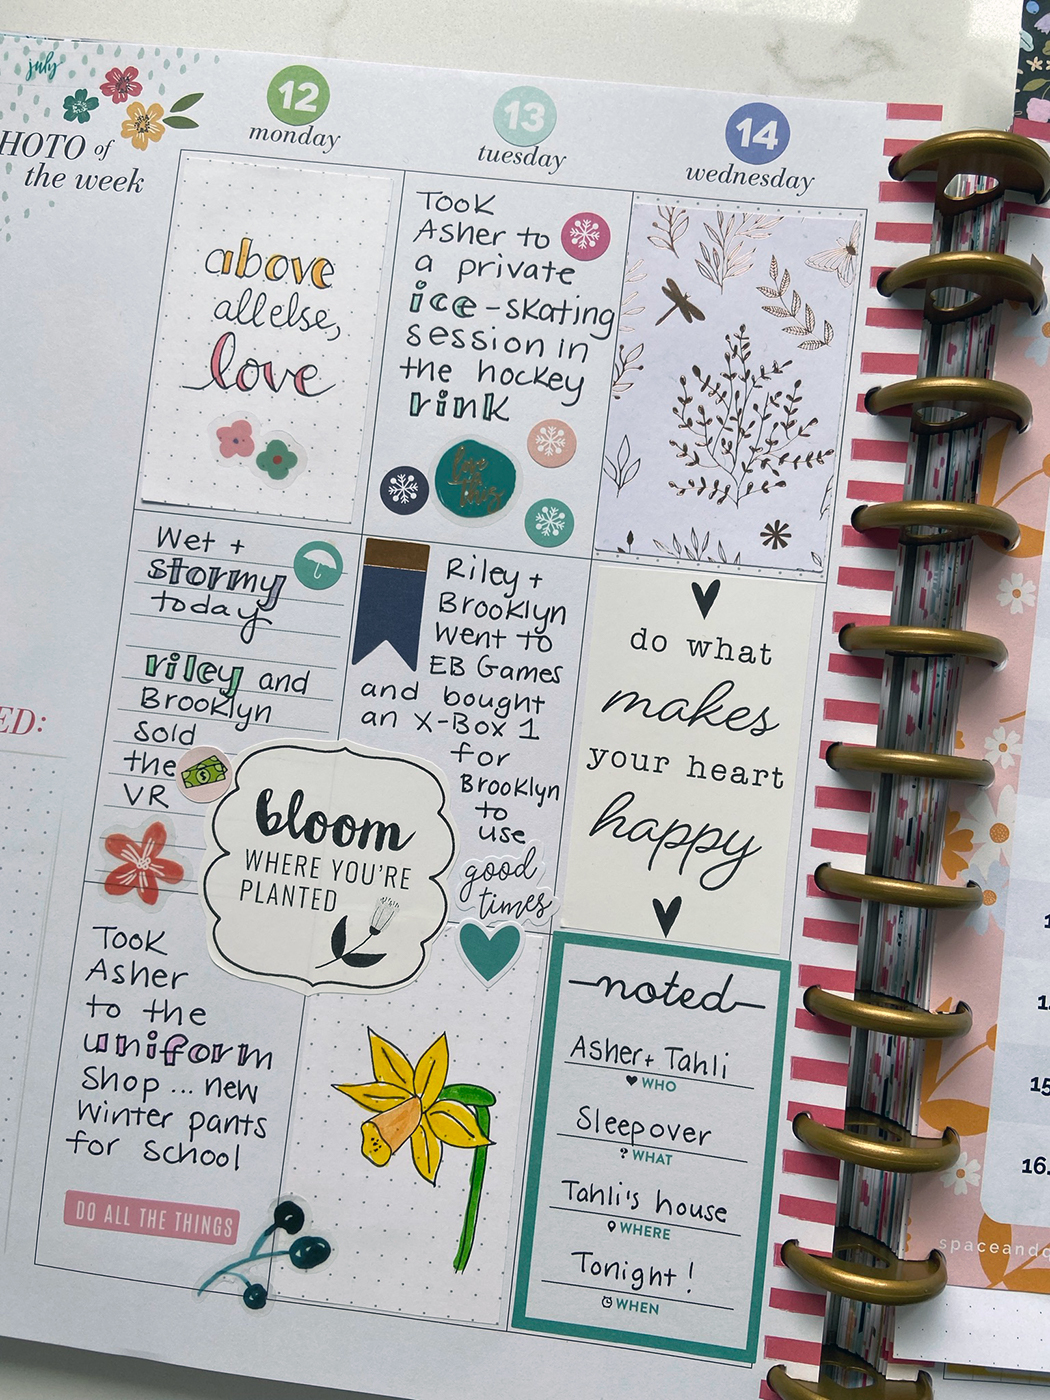 july
HOTO of
the week
ED:
12
monday
above
all else,
love
Wet +
stormy
today
riley and
Brooklyn
Sold
the
VR
bloom
WHERE YOU'RE
PLANTED
Took
Asher
to the
uniform
Shop... new
Winter pants
for School
DO ALL THE THINGS
13
tuesday
Took
Asher to
a private
ice-skating
session in
the hockey
rink
love
this
Riley +
Brooklyn
went to
EB Games
and bought
an X-Box 1
for
Brooklyn
to
use
good
times
14
wednesday
do what
makes
your heart
happy
noted
Asher + Tahli
WHO
Sleepover
? WHAT
Tahli's house
WHERE
Tonight!
WHEN
15
16.
spaceand